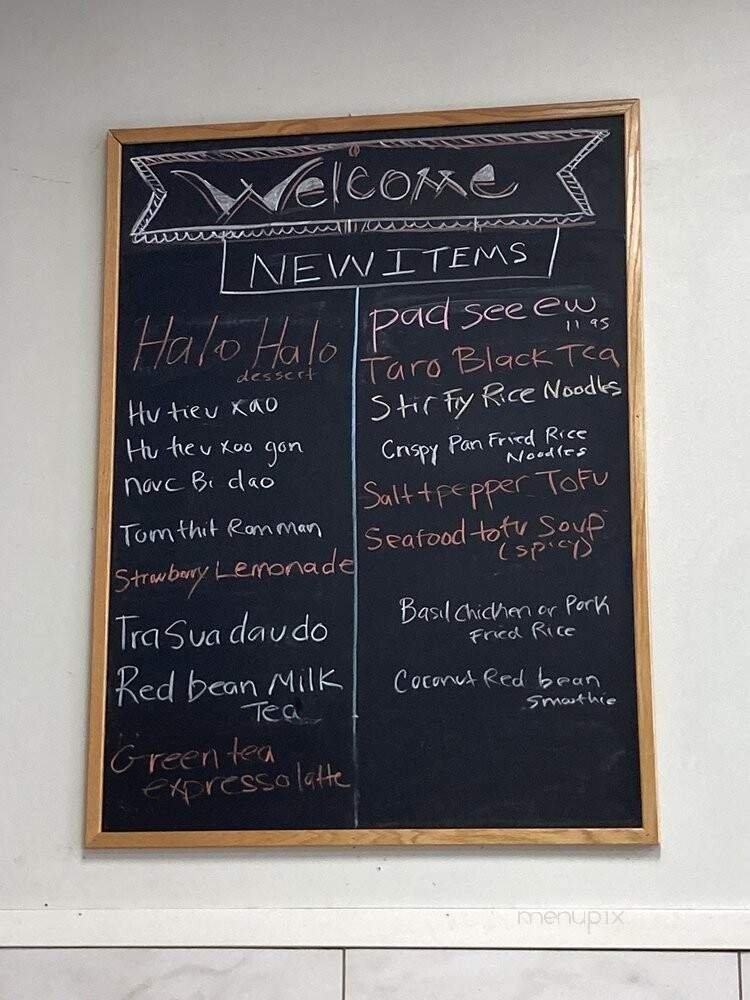 Welcome
NEW ITEMS
Halo Halo
dessert
Hu tieu xao
Hu tieu xoo gon
nouc Bi dao
Tom thit Ram man
Strawberry Lemonade
Tra Sua dau do
Red bean Milk
Tea
Green tea
expresso latte
pad see ew
11 95
Taro Black Tea
Stir Fry Rice Noodles
Crispy Pan Fried Rice
Noodles
Salt + pepper Tofu
Seafood tofu Soup
(spicy)
Basil Chicken or Pork
Fried Rice
Coconut Red bean
Smoothie
menupix